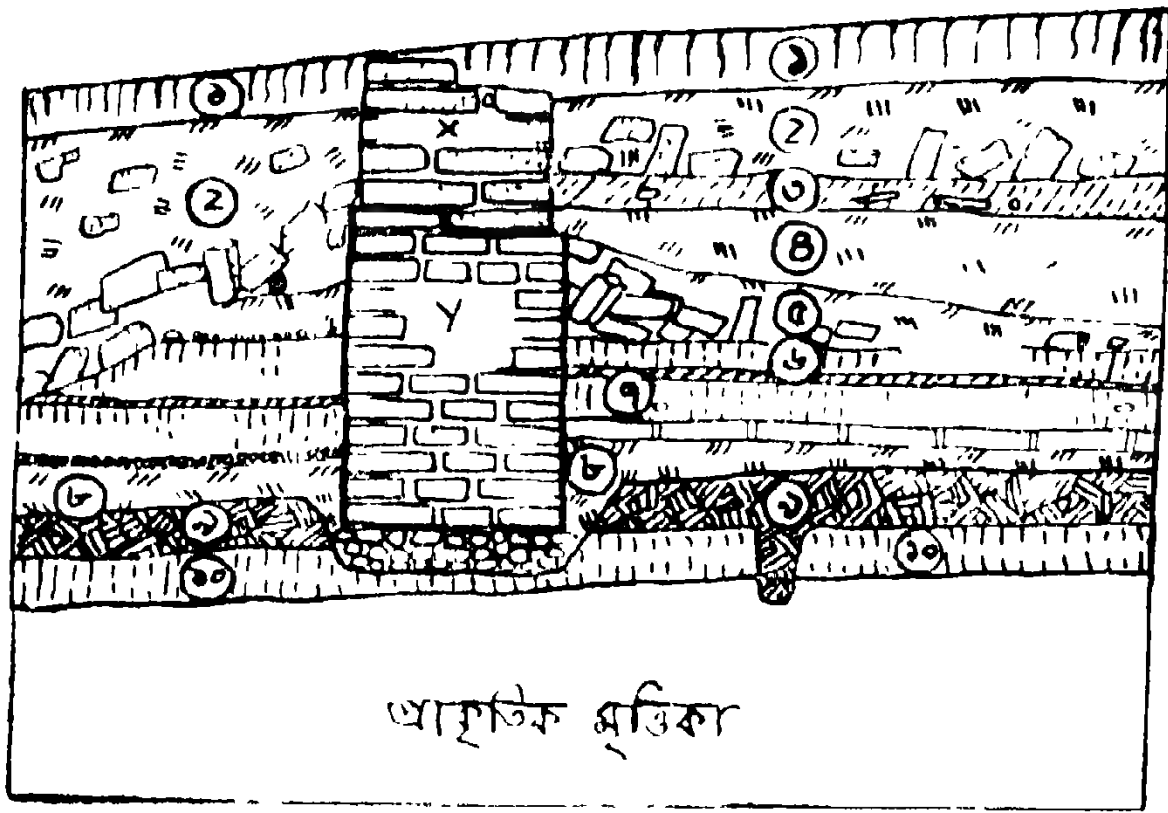 ১
১
X ২
৩
২
৪
Y ৫
৬
৭
৮
৮
৯
৯
১০
১০
প্রাকৃতিক মৃত্তিকা